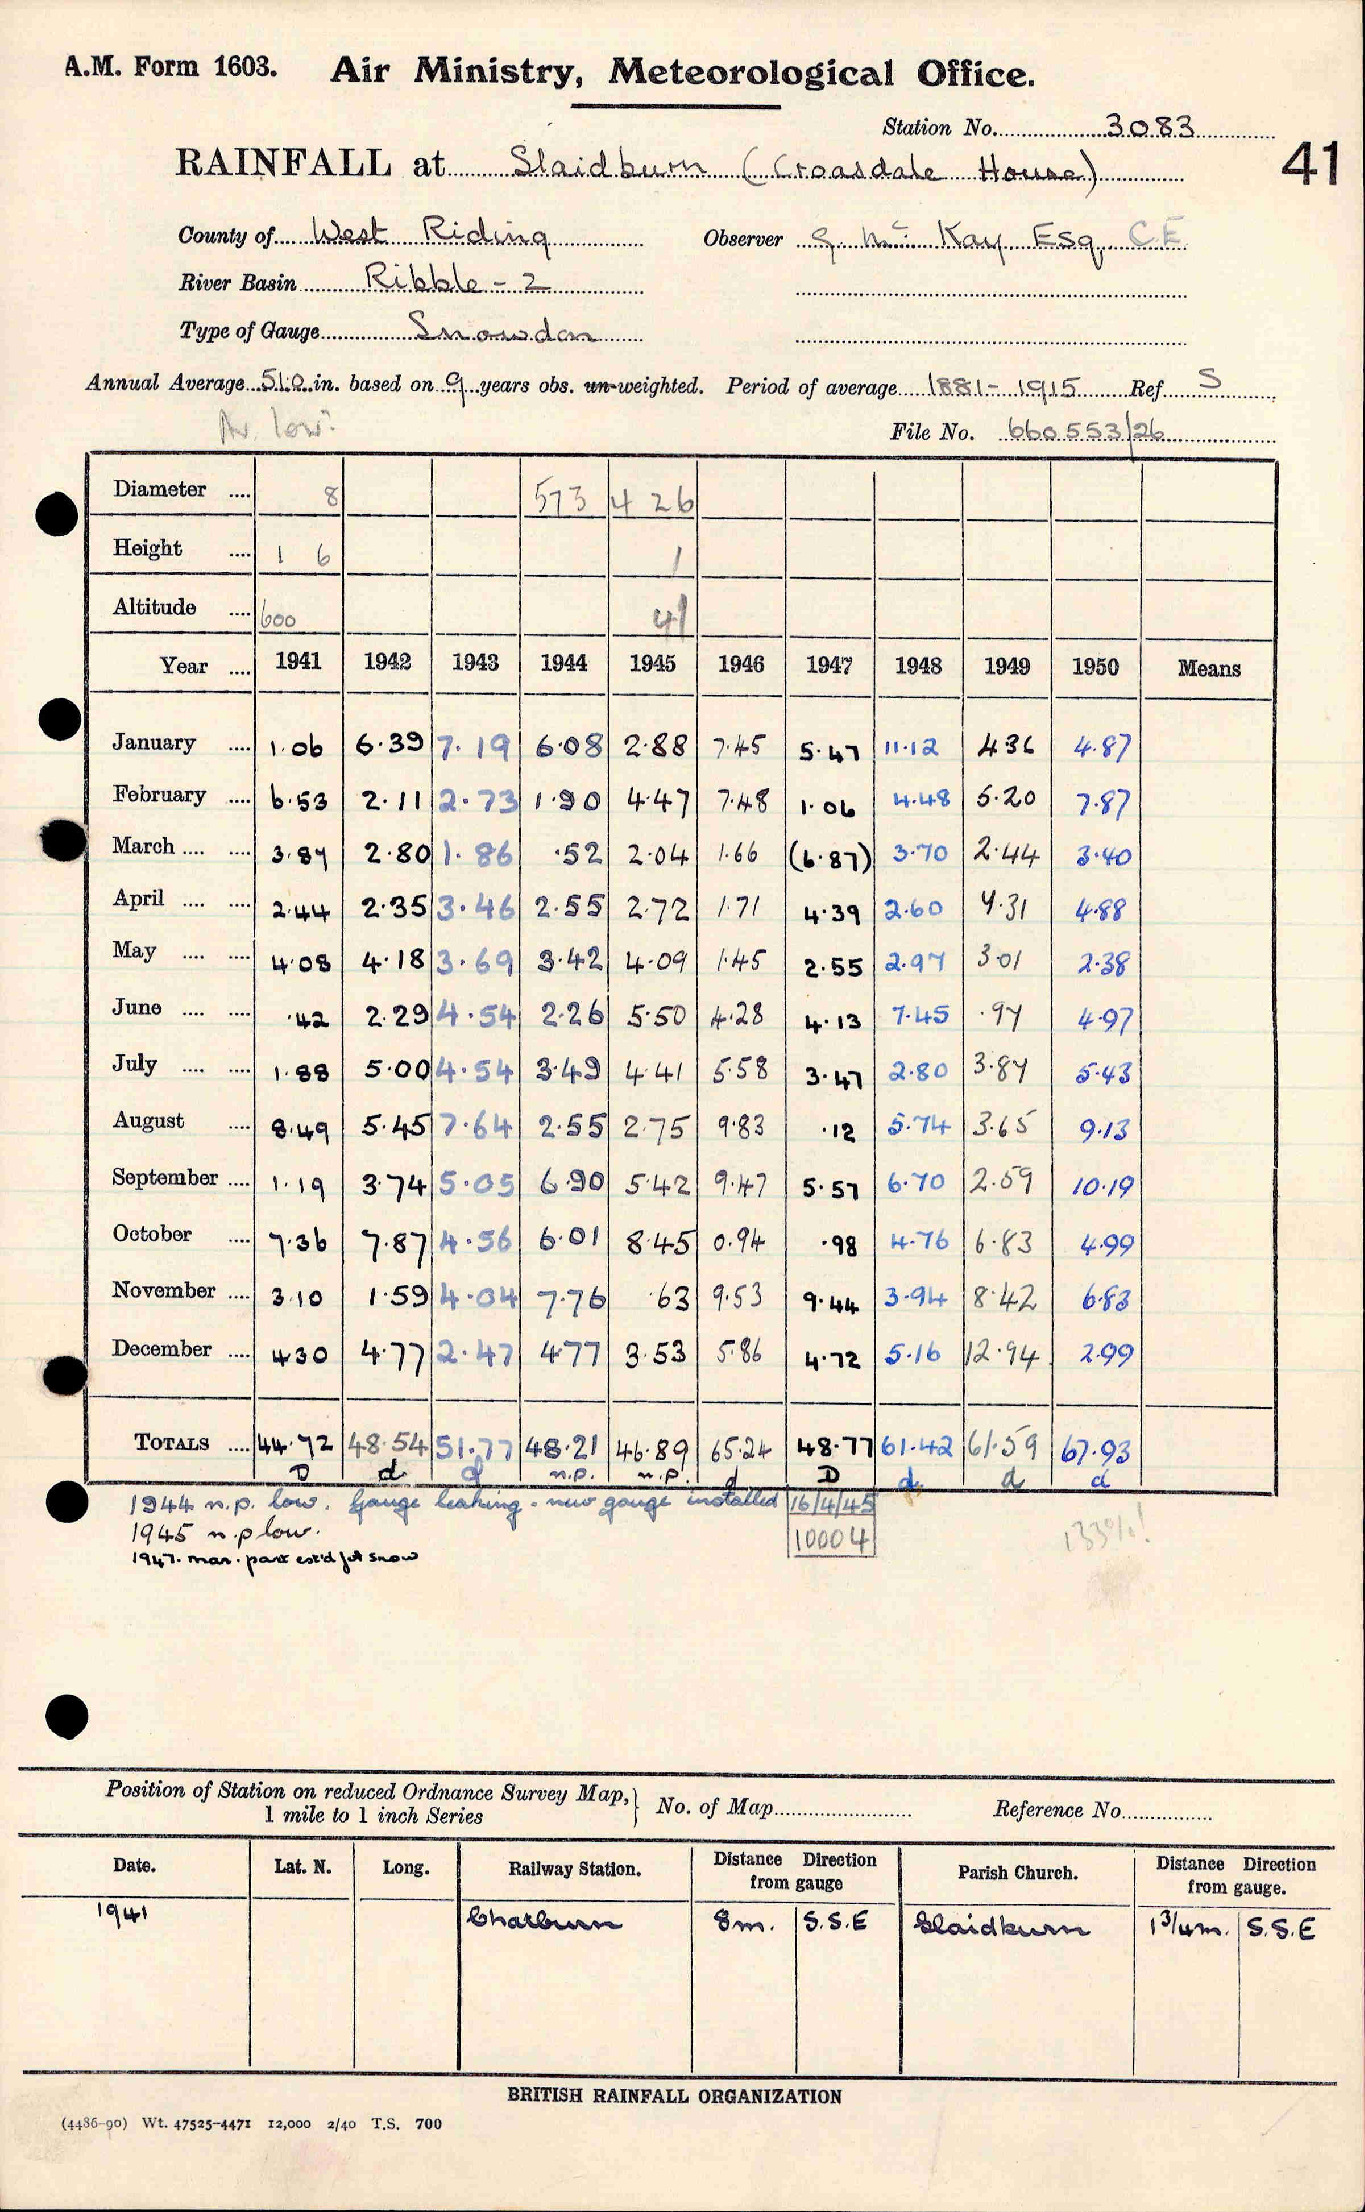 A.M. Form 1603. Air Ministry, Meteorological Office.
Station No. 3083
RAINFALL at Slaidburn (Croasdale House)
41
County of West Riding Observer G. Mc Kay Esq. C.E.
River Basin Ribble - 2
Type of Gauge Snowdon
Annual Average 51.0 in. based on 9 years obs. un-weighted. Period of average 1881 - 1915 Ref. S
Av. low.
File No. 660553/26
Diameter .... 8 573 426
Height .... 1 6 1
Altitude .... 600 41
Year .... 1941 1942 1943 1944 1945 1946 1947 1948 1949 1950 Means
January .... 1.06 6.39 7.19 6.08 2.88 7.45 5.47 11.12 4 36 4.87
February .... 6.53 2.11 2.73 1.90 4.47 7.48 1.06 4.48 5.20 7.87
March .... .... 3.87 2.80 1.86 .52 2.04 1.66 (6.87) 3.70 2.44 3.40
April .... .... 2.44 2.35 3.46 2.55 2.72 1.71 4.39 2.60 7.31 4.88
May .... .... 4.08 4.18 3.69 3.42 4.09 1.45 2.55 2.97 3.01 2.38
June .... .... .42 2.29 4.54 2.26 5.50 4.28 4.13 7.45 .97 4.97
July .... .... 1.88 5.00 4.54 3.49 4.41 5.58 3.47 2.80 3.87 5.43
August .... 8.49 5.45 7.64 2.55 2.75 9.83 .12 5.74 3.65 9.13
September .... 1.19 3.74 5.05 6.90 5.42 9.47 5.57 6.70 2.59 10.19
October .... 7.36 7.87 4.56 6.01 8.45 0.94 .98 4.76 6.83 4.99
November .... 3.10 1.59 4.04 7.76 .63 9.53 9.44 3.94 8.42 6.83
December .... 4.30 4.77 2.47 4.77 3.53 5.86 4.72 5.16 12.94 2.99
TOTALS .... 44.72 48.54 51.77 48.21 46.89 65.24 48.77 61.42 61.59 67.93
D d d n.p. n.p. d D d d d
1944 n.p. low. Gauge leaking - new gauge installed 16/4/45
1945 n.p low. 10004 133%!
1947. mar. part est'd for snow
Position of Station on reduced Ordnance Survey Map, 1 mile to 1 inch Series } No. of Map Reference No.
Date. Lat. N. Long. Railway Station. Distance Direction from gauge Parish Church. Distance Direction from gauge.
1941 Chatburn 8m. S.S.E Slaidburn 1 3/4m. S.S.E
BRITISH RAINFALL ORGANIZATION
(4486-90) Wt. 47525-4471 12,000 2/40 T.S. 700